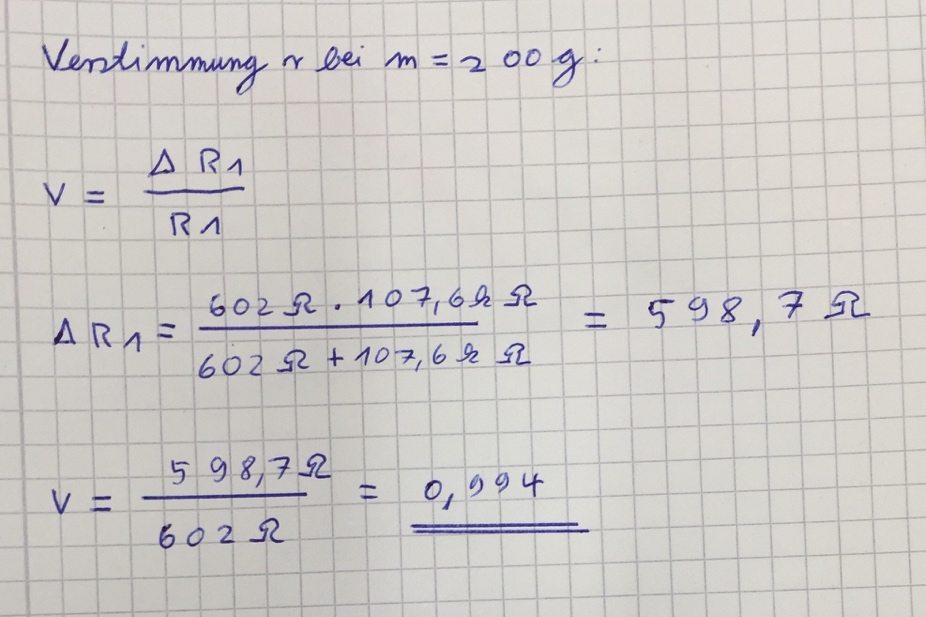 Verstimmung v bei m = 200 g:
V = ΔR1 / R1
ΔR1 = 602 Ω · 107,6 k Ω / 602 Ω + 107,6 k Ω = 598,7 Ω
V = 598,7 Ω / 602 Ω = 0,994